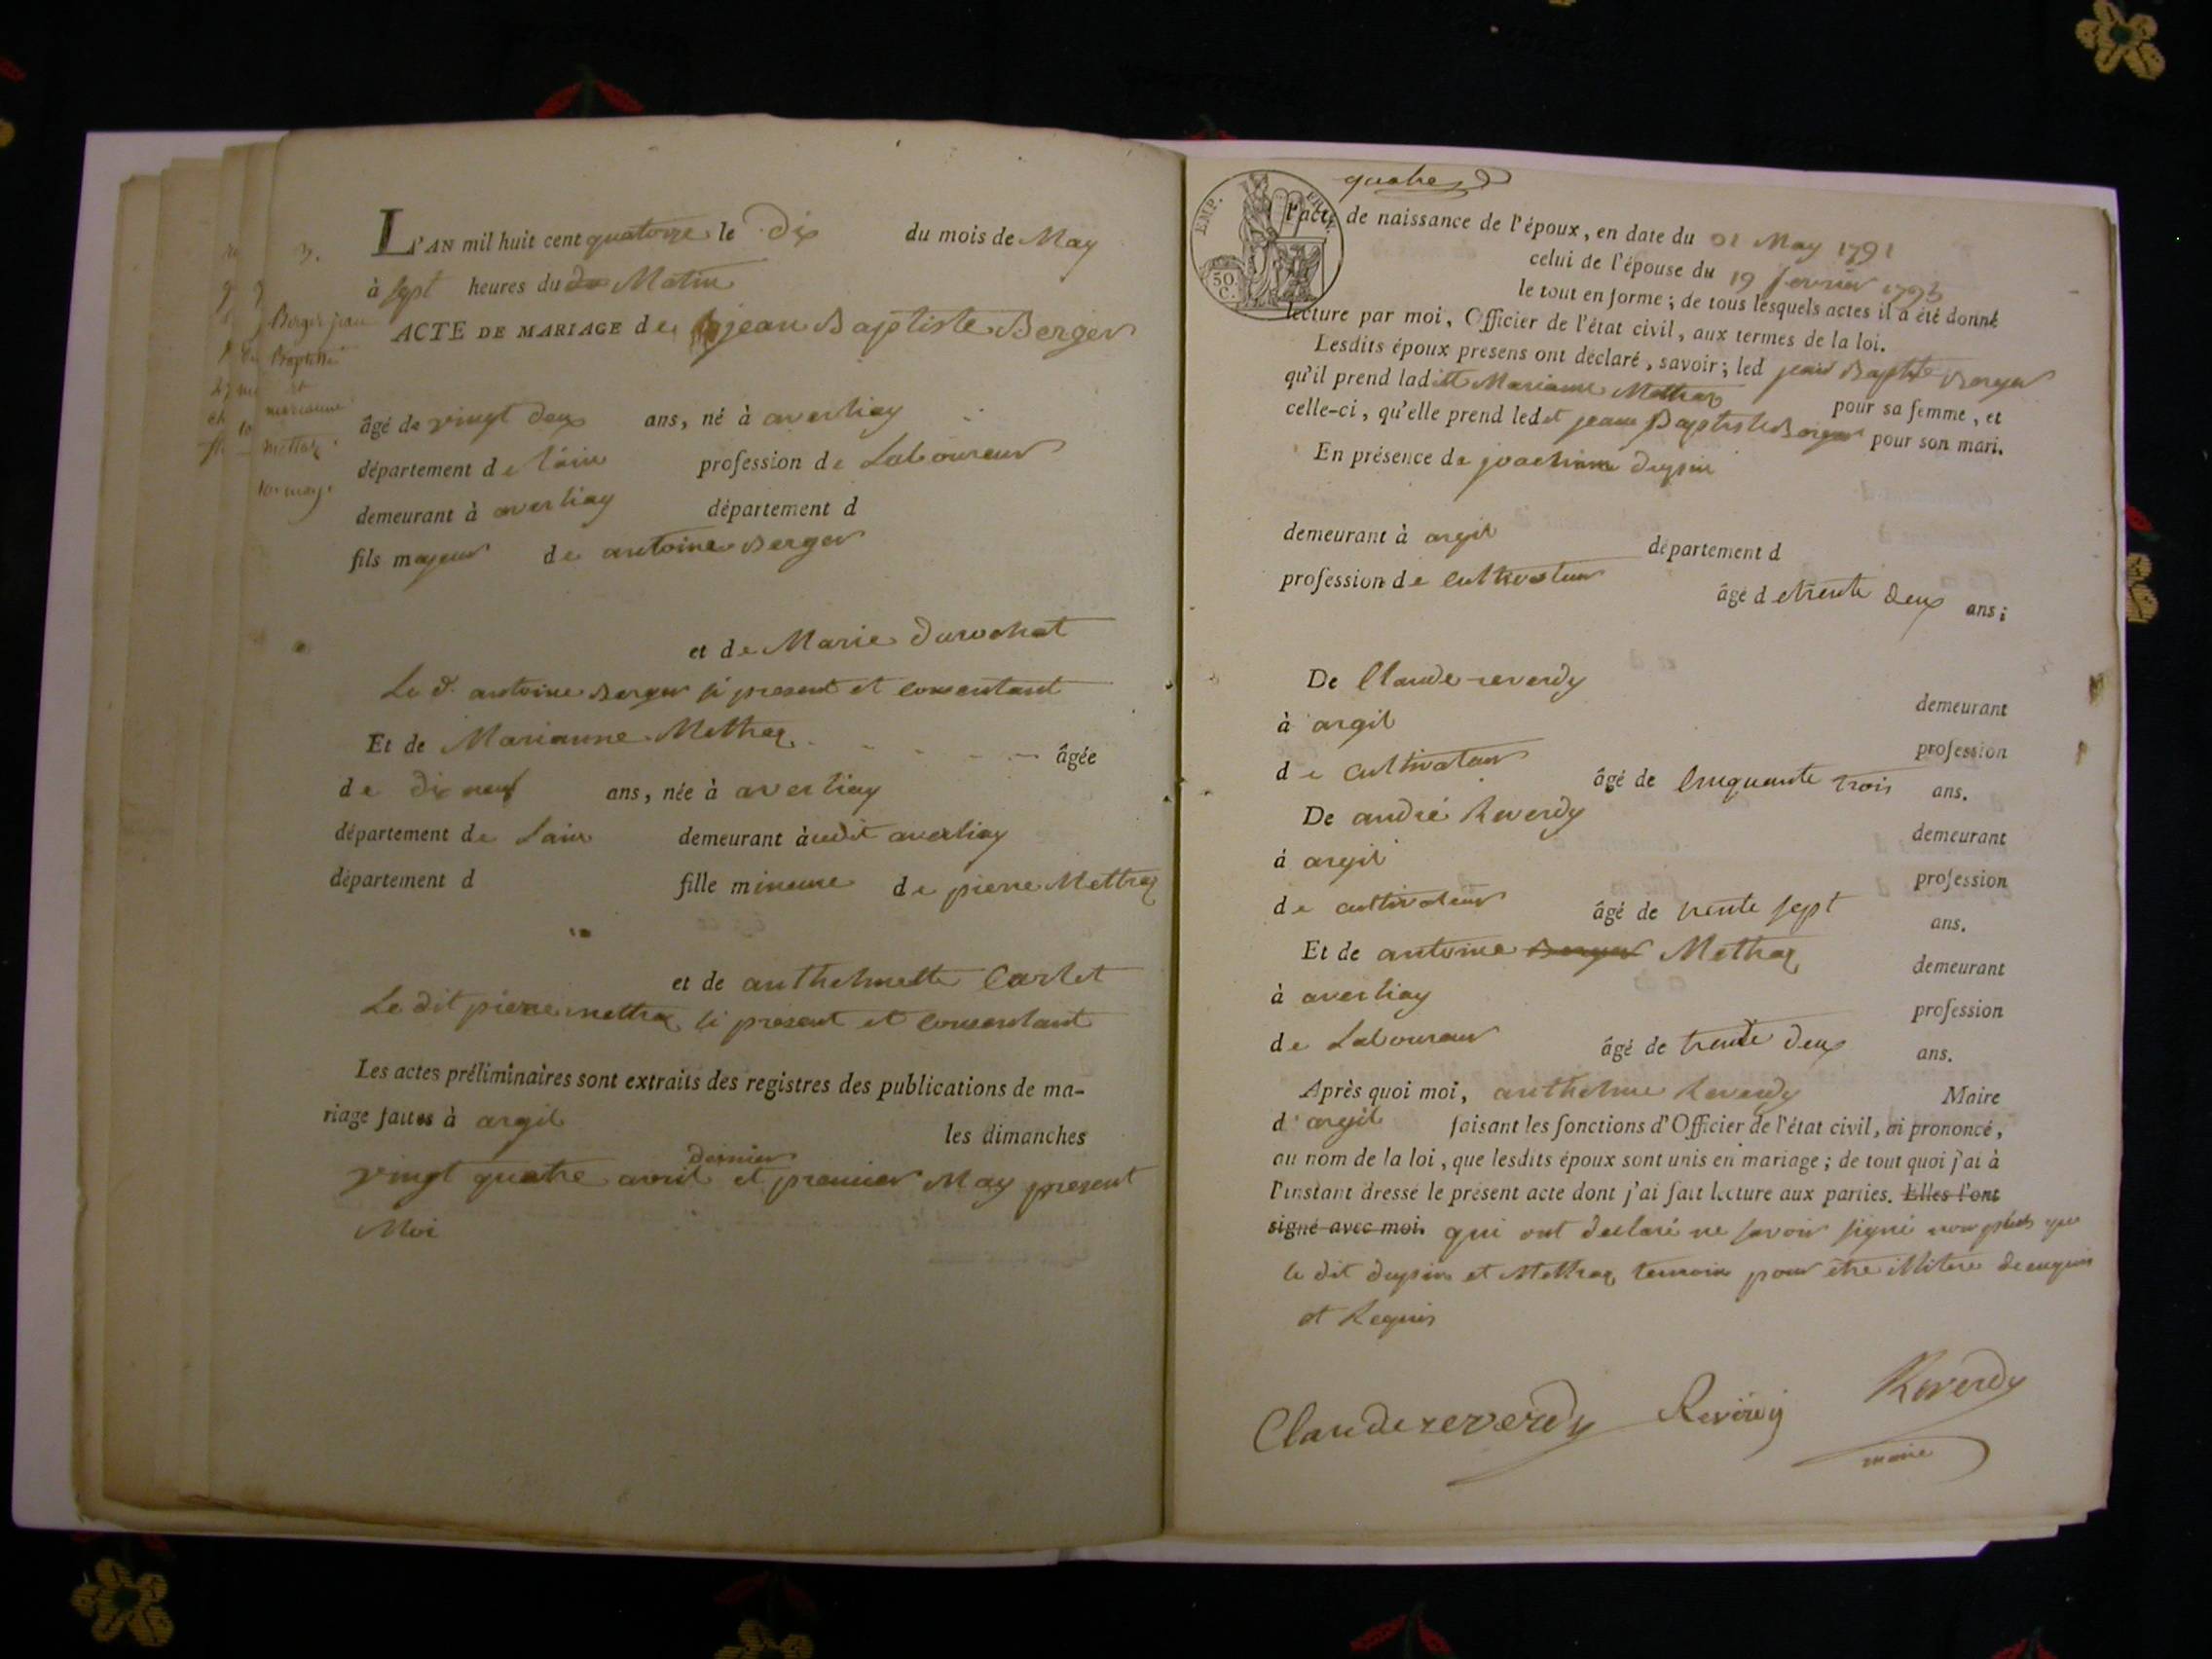 3.
Berger jean
Baptiste
et
marianne
mettraz
10 may.
L'AN mil huit cent quatorze le dix du mois de May
à sept heures du Matin
ACTE DE MARIAGE de jean Baptiste Berger
âgé de vingt deux ans, né à averliay
département de l'ain profession de Laboureur
demeurant à averliay département d
fils majeur de antoine Berger
et de Marie durochat
Le d. antoine Berger si present et consentant
Et de Marianne Mettraz âgée
de dix neuf ans, née à averliay
département de Lain demeurant audit averliay
département d fille mineure de pierre Mettraz
et de anthelmette Carlet
Le dit pierre mettraz si present et consentant
Les actes préliminaires sont extraits des registres des publications de ma-
riage faites à argil les dimanches
vingt quatre avril dernier et premier May present
Moi
quatre
EMP. FRAN.
50. C.
l'acte de naissance de l'époux, en date du 01 May 1791
celui de l'épouse du 19 fevrier 1793
le tout en forme; de tous lesquels actes il a été donné
lecture par moi, Officier de l'état civil, aux termes de la loi.
Lesdits époux présens ont déclaré, savoir; led jean Baptiste Berger
qu'il prend ladite Marianne Mettraz pour sa femme, et
celle-ci, qu'elle prend ledit jean Baptiste Berger pour son mari.
En présence de joachim dupin
demeurant à argil département d
profession de cultivateur âgé de trente deux ans;
De Claude reverdy demeurant
à argil profession
de cultivateur âgé de cinquante trois ans.
De andré Reverdy demeurant
à argil profession
de cultivateur âgé de trente sept ans.
Et de antoine Berger Mettraz demeurant
à averliay profession
de Laboureur âgé de trente deux ans.
Après quoi moi, anthelme Reverdy Maire
d'argil faisant les fonctions d'Officier de l'état civil, ai prononcé,
au nom de la loi, que lesdits époux sont unis en mariage; de tout quoi j'ai à
l'instant dressé le présent acte dont j'ai fait lecture aux parties. Elles l'ont
signé avec moi. qui ont declaré ne savoir signé non plus que
le dit dupin et Mettraz temoin pour être illitere de enquis
et Requis
Claude reverdy Reverdy Reverdy
maire